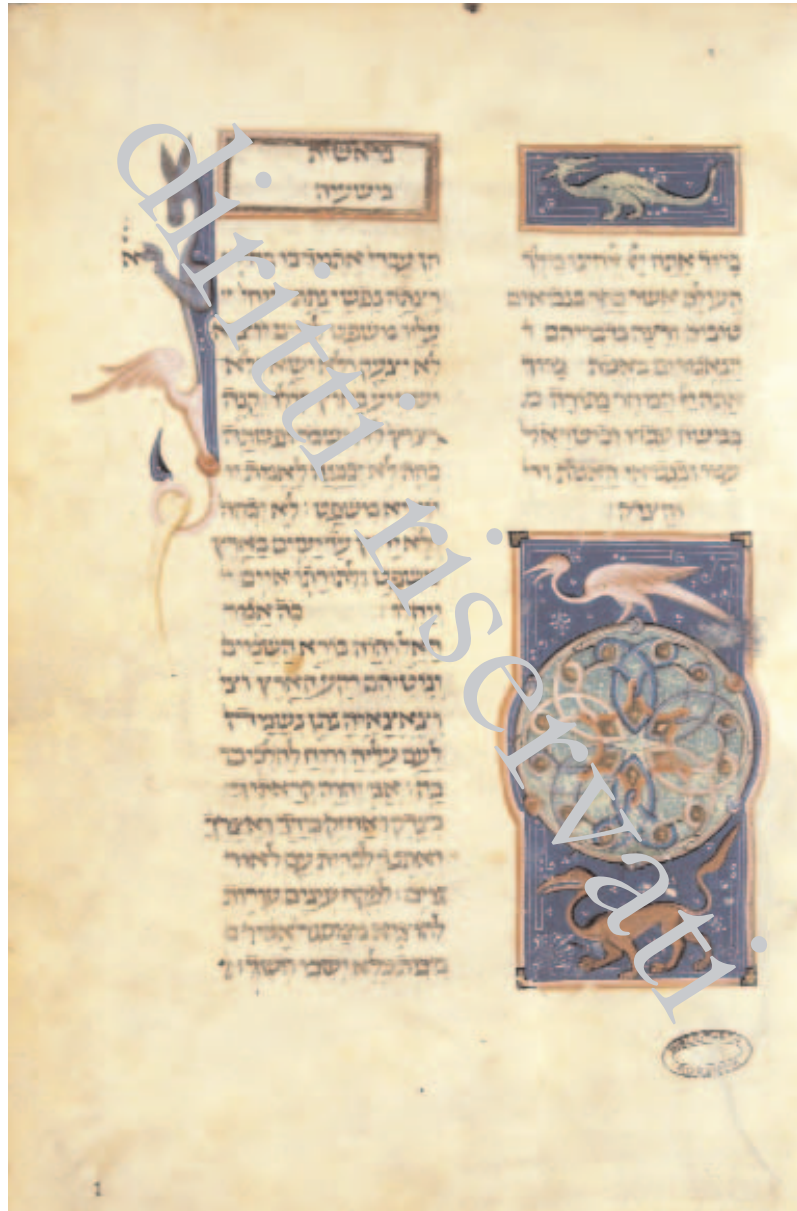 ברוך אתה יי אלהינו מלך
העולם אשר בחר בנביאים
טובים ורצה בדבריהם ה
הנאמרים באמת ברוך
אתה יי הבוחר בתורה ב
ובמשה עבדו ובישראל
עמו ובנביאי האמת וה
והצדק:
בראשית
בישעיה
הן עבדי אתמך בו
רצתה נפשי נתתי רוחי
עליו משפט לגוים יוציא
לא יצעק ולא ישא ולא
ישמיע בחוץ קולו קנה
רצוץ לא ישבור ופשתה
כהה לא יכבנה לאמת י
יוציא משפט: לא יכהה
ולא ירוץ עד ישים בארץ
משפט ולתורתו איים י
כה אמר
האל יהוה בורא השמים
ונוטיהם רקע הארץ וצ
וצאצאיה נתן נשמה
לעם עליה ורוח להלכים
בה: אני יהוה קראתיך
בצדק ואחזק בידך ואצרך
ואתנך לברית עם לאור
גוים: לפקח עינים עורות
להוציא ממסגר אסיר מ
מבית כלא ישבי חשך:
1
diritti riservati